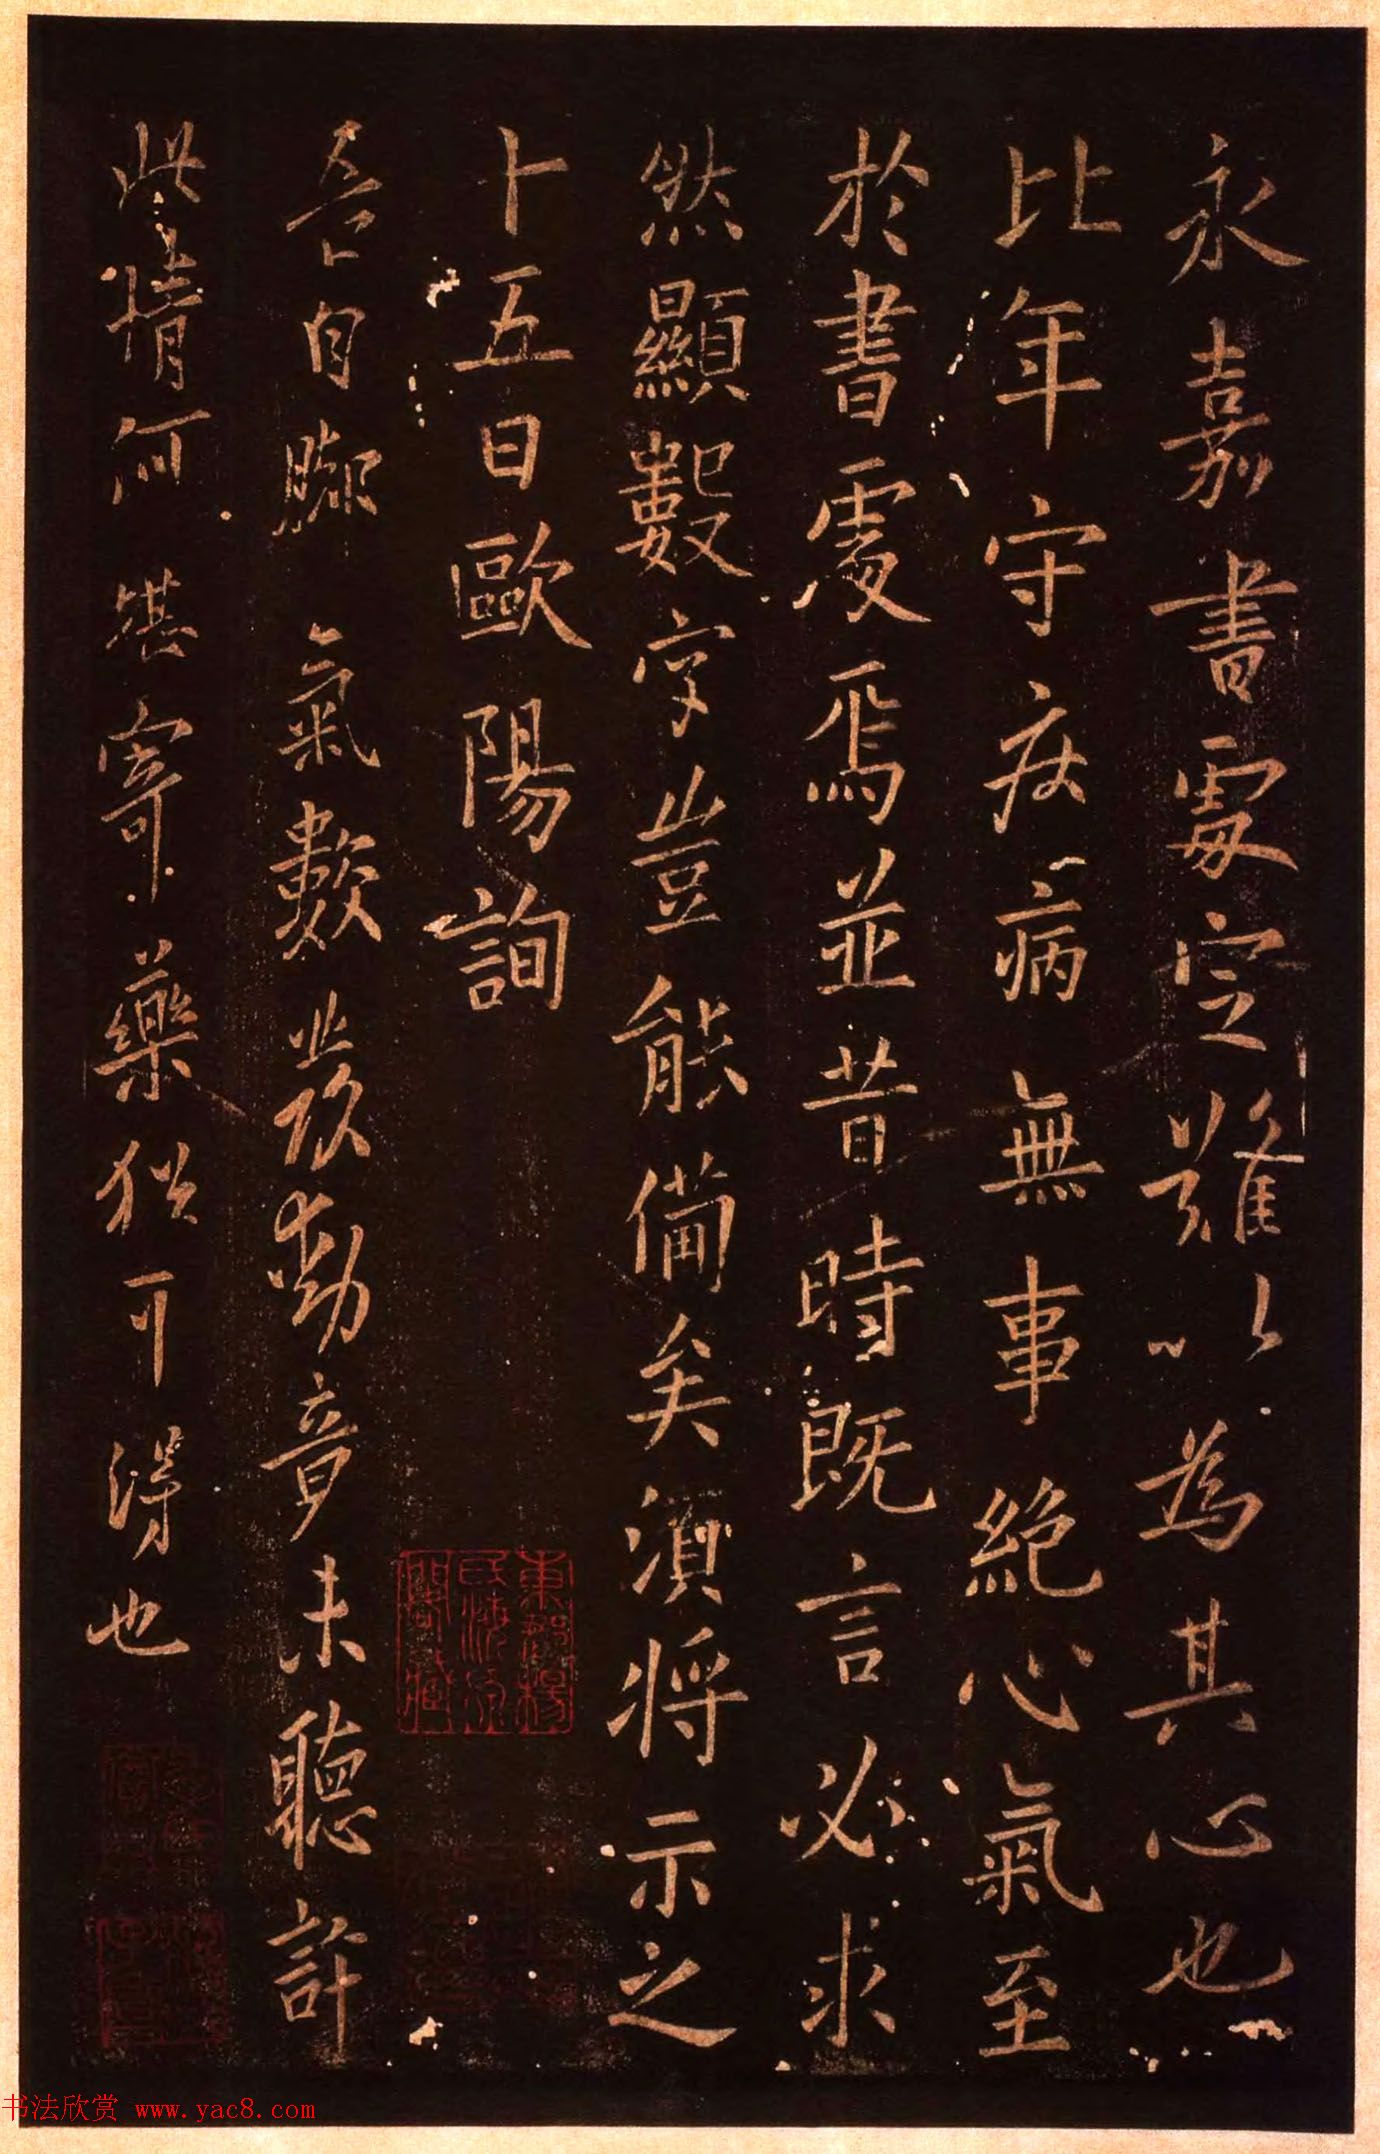 永嘉書處定難以為其心也
比年守疾病無事絕心氣至
於書處焉並昔時既言必求
然顯數字豈能備矣須將示之
卜五日歐陽詢
吾自腳氣數發動竟未聽許
此情何堪寄藥猶可得也
東郡楊
氏海源
閣藏
书法欣赏 www.yac8.com